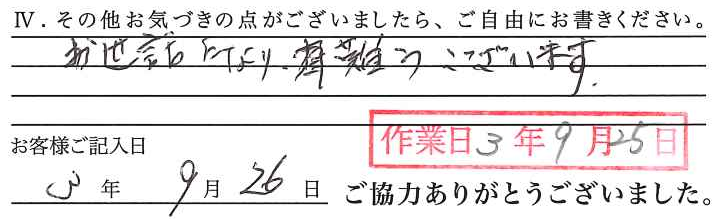 Ⅳ．その他お気づきの点がございましたら、ご自由にお書きください。
お世話になり、有難うございます。
作業日3年9月25日
お客様ご記入日
3年9月26日
ご協力ありがとうございました。